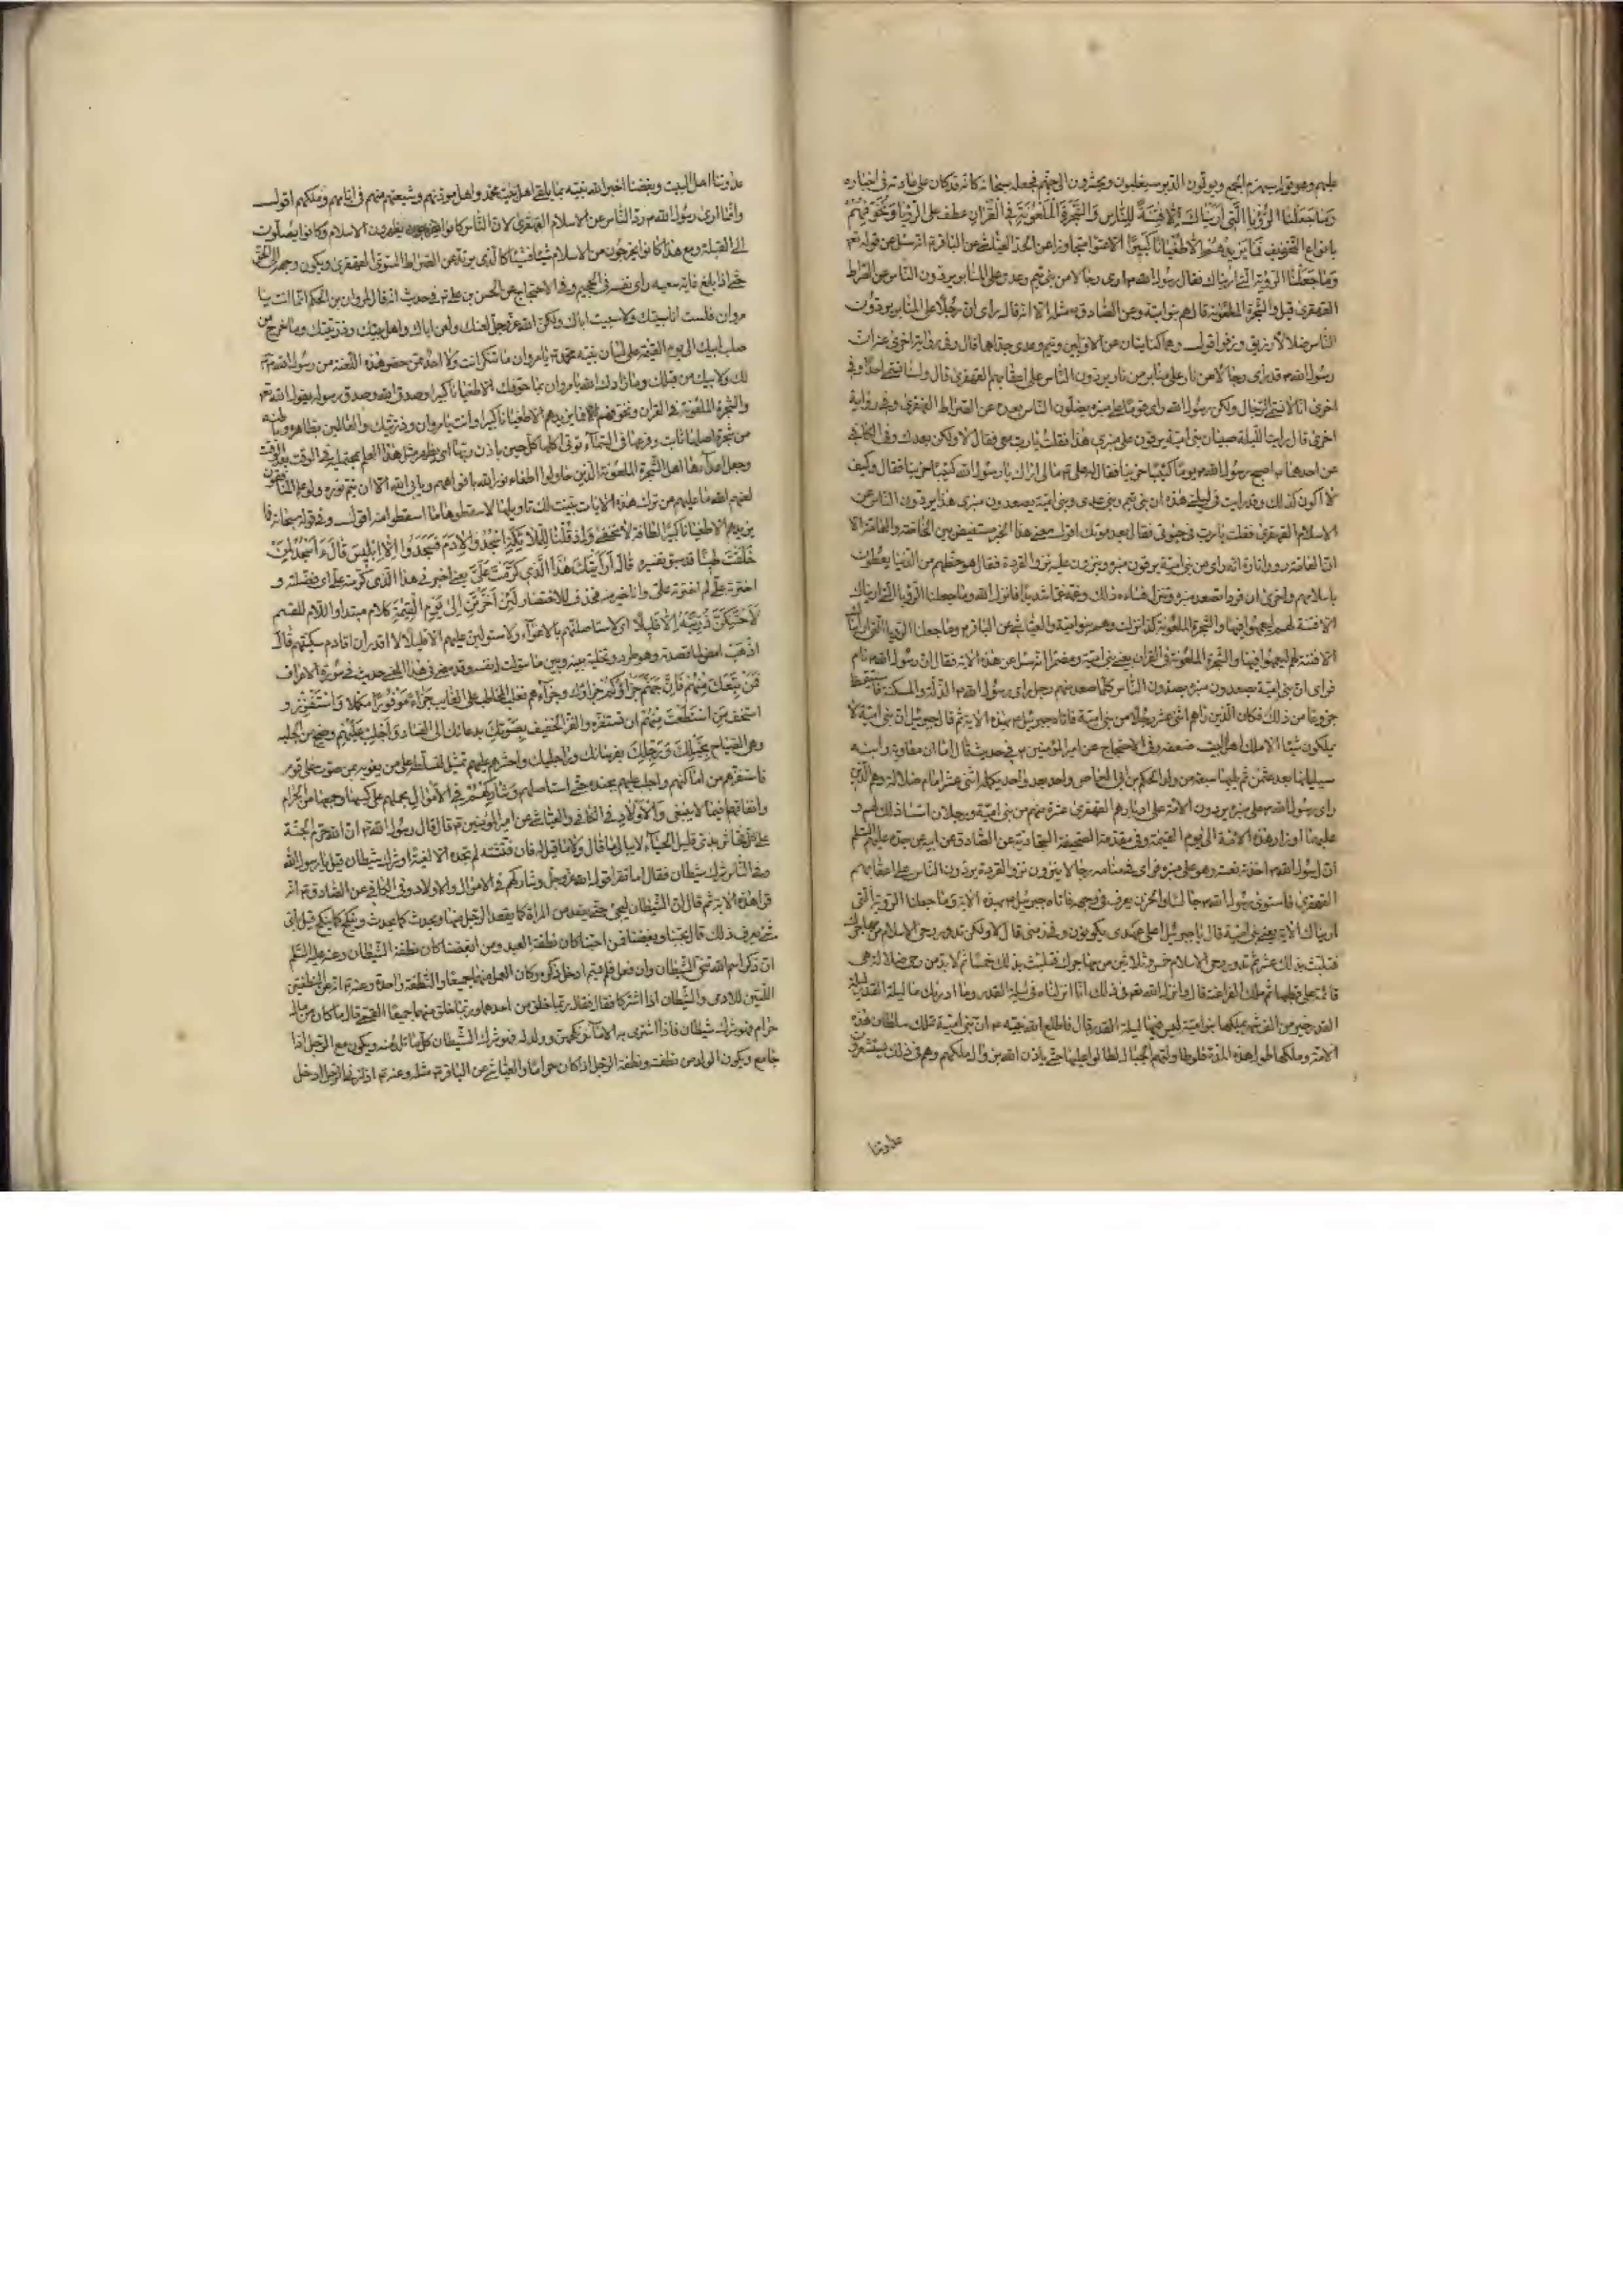 عليهم وهو قوله سيهزم الجمع ويولون الدبر سيغلبون ويحشرون الى جهنم فجعله سبحانه كانه قد كان على عادته في اخباره
وَمَا جَعَلْنَا الرُّؤْيَا الَّتِي أَرَيْنَاكَ إِلَّا فِتْنَةً لِلنَّاسِ وَالشَّجَرَةَ الْمَلْعُونَةَ فِي الْقُرْآنِ عطف على الرؤيا وَنُخَوِّفُهُمْ
بانواع التخويف فَمَا يَزِيدُهُمْ إِلَّا طُغْيَانًا كَبِيرًا الا عتوا متجاوزا عن الحد العياشي عن الباقر انه سئل عن قوله
وما جعلنا الرؤيا التي اريناك فقال ان رسول الله ارى رجالا من بني تيم وعدي على المنابر يردون الناس عن الصراط
القهقرى قيل والشجرة الملعونة قال هم بنو امية وعن الصادق مثله الا انه قال راى ان رجالا على المنابر يردون
الناس ضلالا زريق وزفر اقول وهما كنايتان عن الاولين وتيم وعدي جداهما قال وفي رواية اخرى عنه ان
رسول الله قد راى رجالا من نار على منابر من نار يردون الناس على اعقابهم القهقرى قال ولسنا نسمي احدا وفي
اخرى انا لا نسمي الرجال ولكن رسول الله راى قوما على منبره يضلون الناس بعده عن الصراط القهقرى وفي رواية
اخرى قال رايت الليلة صبيان بني امية يرقون على منبري هذا فقلت يا رب معي فقال لا ولكن بعدك وفي الكافي
عن احدهما اصبح رسول الله يوما كئيبا حزينا فقال له علي مالي اراك يا رسول الله كئيبا حزينا فقال وكيف
لا اكون كذلك وقد رايت في ليلتي هذه ان بني تيم وبني عدي وبني امية يصعدون منبري هذا يردون الناس عن
الاسلام القهقرى فقلت يا رب في حيوتي فقال بعد موتك اقول معنى هذا الخبر مستفيض بين الخاصة والعامة الا
ان العامة رووا تارة انه راى من بني امية يرقون منبره وينزون عليه نزو القردة فقال هو حظهم من الدنيا يعطون
باسلامهم واخرى ان قردا تصعد منبره وتنزل فساءه ذلك وغمه غما شديدا فانزل الله وما جعلنا الرؤيا التي اريناك
الا فتنة لهم ليعمهوا فيها والشجرة الملعونة كذا نزلت وهم بنو امية والعياشي عن الباقر وما جعلنا الرؤيا التي اريناك
الا فتنة لهم ليعمهوا فيها والشجرة الملعونة في القران يعني بني امية ومضمرا انه سئل عن هذه الاية فقال ان رسول الله نام
فراى ان بني امية يصعدون منبره يصدون الناس كلما صعد منهم رجل راى رسول الله الذلة والمسكنة فاستيقظ
جزوعا من ذلك فكان الذين راهم اثني عشر رجلا من بني امية فاتاه جبرئيل بهذه الاية ثم قال جبرئيل ان بني امية لا
يملكون شيئا الا ملك اهل البيت ضعفه وفي الاحتجاج عن امير المؤمنين في حديث قال اما ان معاوية وابنه
سيليانها بعد عثمن ثم يليها سبعة من ولد الحكم بن ابي العاص واحد بعد واحد يكمله اثني عشر امام ضلالة وهم الذين
راى رسول الله على منبره يردون الامة على ادبارهم القهقرى عشرة منهم من بني امية ورجلان اسسا ذلك لهم و
عليهما اوزار هذه الامة الى يوم القيمة وفي مقدمة الصحيفة السجادية عن الصادق عن ابيه عن جده عليهم السلم
ان رسول الله اخذته نعسة وهو على منبره فراى في منامه رجالا ينزون نزو القردة يردون الناس على اعقابهم
القهقرى فاستوى رسول الله جالسا والحزن يعرف في وجهه فاتاه جبرئيل بهذه الاية وما جعلنا الرؤيا التي
اريناك الاية يعني بني امية قال يا جبرئيل اعلى عهدي يكونون وفي زمني قال لا ولكن تدور رحى الاسلام من مهاجرك
فتلبث بذلك عشرا ثم تدور رحى الاسلام خمس وثلاثين من مهاجرك فتلبث بذلك خمسا ثم لا بد من رحى ضلالة هي
قائمة على قطبها ثم ملك الفراعنة قال وانزل الله تعم في ذلك انا انزلناه في ليلة القدر وما ادريك ما ليلة القدر ليلة
القدر خير من الف شهر يملكها بنو امية ليس فيها ليلة القدر قال فاطلع الله نبيه ان بني امية تملك سلطان هذه
الامة وملكها طول هذه المدة فلو طاولتهم الجبال لطالوا عليها حتى ياذن الله بزوال ملكهم وهم في ذلك يستشعرون
عداوتنا
عداوتنا اهل البيت وبغضنا اخبر الله نبيه بما يلقى اهل بيت محمد واهل مودتهم وشيعتهم منهم في ايامهم وملكهم اقول
وانما ارى رسول الله رد الناس عن الاسلام القهقرى لان الناس كانوا يظهرون الاسلام وكانوا يصلون
الى القبلة ومع هذا كانوا يخرجون من الاسلام شيئا فشيئا كالذي يرتد عن الصراط السوي القهقرى ويكون وجهه الى الحق
حتى اذا بلغ غاية سعيه راى نفسه في الجحيم وفي الاحتجاج عن الحسن بن علي في حديث انه قال لمروان بن الحكم اما انت يا
مروان فلست انا سببتك ولا سببت اباك ولكن الله عز وجل لعنك ولعن اباك واهل بيتك وذريتك وما خرج من
صلب ابيك الى يوم القيمة على لسان نبيه محمد يا مروان ما تنكر انت ولا احد ممن حضر هذه اللعنة من رسول الله
لك ولابيك من قبلك وما زادك الله يا مروان بما خوفك الا طغيانا كبيرا وصدق الله وصدق رسوله بقول الله
والشجرة الملعونة في القران ونخوفهم فما يزيدهم الا طغيانا كبيرا وانت يا مروان وذريتك والعالمين بظاهره وباطنه
من شجرة اصلها ثابت وفرعها في السماء تؤتي اكلها كل حين باذن ربها اي يظهر مثل هذا العلم لمحتمليه في الوقت بعد الوقت
وجعل اعداءها اهل الشجرة الملعونة الذين حاولوا اطفاء نور الله بافواههم ويابى الله الا ان يتم نوره ولو علم المنافقون
لعنهم الله ما عليهم من ترك هذه الايات بينت لك تاويلها لاسقطوها ما اسقطوا منه اقول وفي قوله سبحانه فما
يزيدهم الا طغيانا كبيرا لطافة لا تخفى وَإِذْ قُلْنَا لِلْمَلَائِكَةِ اسْجُدُوا لِآدَمَ فَسَجَدُوا إِلَّا إِبْلِيسَ قَالَ ءَأَسْجُدُ لِمَنْ
خَلَقْتَ طِينًا قد سبق تفسيره قَالَ أَرَأَيْتَكَ هَذَا الَّذِي كَرَّمْتَ عَلَيَّ يعني اخبرني هذا الذي كرمته علي اي فضلته و
اخترته علي لم اخترته علي وانا خير منه فحذف للاختصار لَئِنْ أَخَّرْتَنِ إِلَى يَوْمِ الْقِيٰمَةِ كلام مبتدا واللام للقسم
لَأَحْتَنِكَنَّ ذُرِّيَّتَهُ إِلَّا قَلِيلًا اي لاستاصلنهم بالاغواء ولاستولين عليهم الا قليلا لا اقدر ان اقاوم سكينتهم قَالَ
اذْهَبْ امض لما قصدته وهو طرد وتخلية بينه وبين ما سولت له نفسه وقد مضى في هذا المعنى حديث في سورة الاعراف
فَمَنْ تَبِعَكَ مِنْهُمْ فَإِنَّ جَهَنَّمَ جَزَاؤُكُمْ جزاؤك وجزاءهم فغلب المخاطب على الغايب جَزَاءً مَوْفُورًا مكملا وَاسْتَفْزِزْ و
استخف مَنِ اسْتَطَعْتَ مِنْهُمْ ان تستفزه والفز الخفيف بِصَوْتِكَ بدعائك الى الفساد وَأَجْلِبْ عَلَيْهِمْ وصح من الجلبة
وهي الصياح بِخَيْلِكَ وَرَجِلِكَ بفرسانك وراجليك واحشرهم عليهم تمثيل لتسلطه على من يغويه بمن صوت على قوم
فاستفزهم من اماكنهم واجلب عليهم بجنده حتى استاصلهم وَشَارِكْهُمْ فِي الْأَمْوَالِ بحملهم على كسبها وجمعها من الحرام
وانفاقها فيما لا ينبغي وَالْأَوْلَادِ في الكافي والعياشي عن امير المؤمنين قال قال رسول الله ان الله حرم الجنة
على كل فحاش بذي قليل الحياء لا يبالي ما قال ولا ما قيل له فان فتشته لم تجده الا لغية او شرك شيطان قيل يا رسول الله
وفي الناس شرك شيطان فقال اما تقرا قول الله عز وجل وشاركهم في الاموال والاولاد وفي الكافي عن الصادق انه
قرا هذه الاية ثم قال ان الشيطان ليجيء حتى يقعد من المراة كما يقعد الرجل منها ويحدث كما يحدث وينكح كما ينكح قيل باي
شيء يعرف ذلك قال بحبنا وبغضنا فمن احبنا كان نطفة العبد ومن ابغضنا كان نطفة الشيطان وعنه عليه السلم
ان ذكر اسم الله تنحى الشيطان وان فعل فلم يسم ادخل ذكره وكان العمل منهما جميعا والنطفة واحدة وعنه انه سئل عن النطفتين
اللتين للادمي والشيطان اذا اشتركا فقال ربما خلق من احدهما وربما خلق منهما جميعا القمي قال ما كان من مال
حرام فهو شرك شيطان فاذا اشترى به الاماء ونكحهن وولد له فهو شرك الشيطان كل ما تلد منه ويكون مع الرجل اذا
جامع ويكون الولد من نطفته ونطفة الرجل اذا كان حراما والعياشي عن الباقر مثله وعنه اذا زنى الرجل ادخل